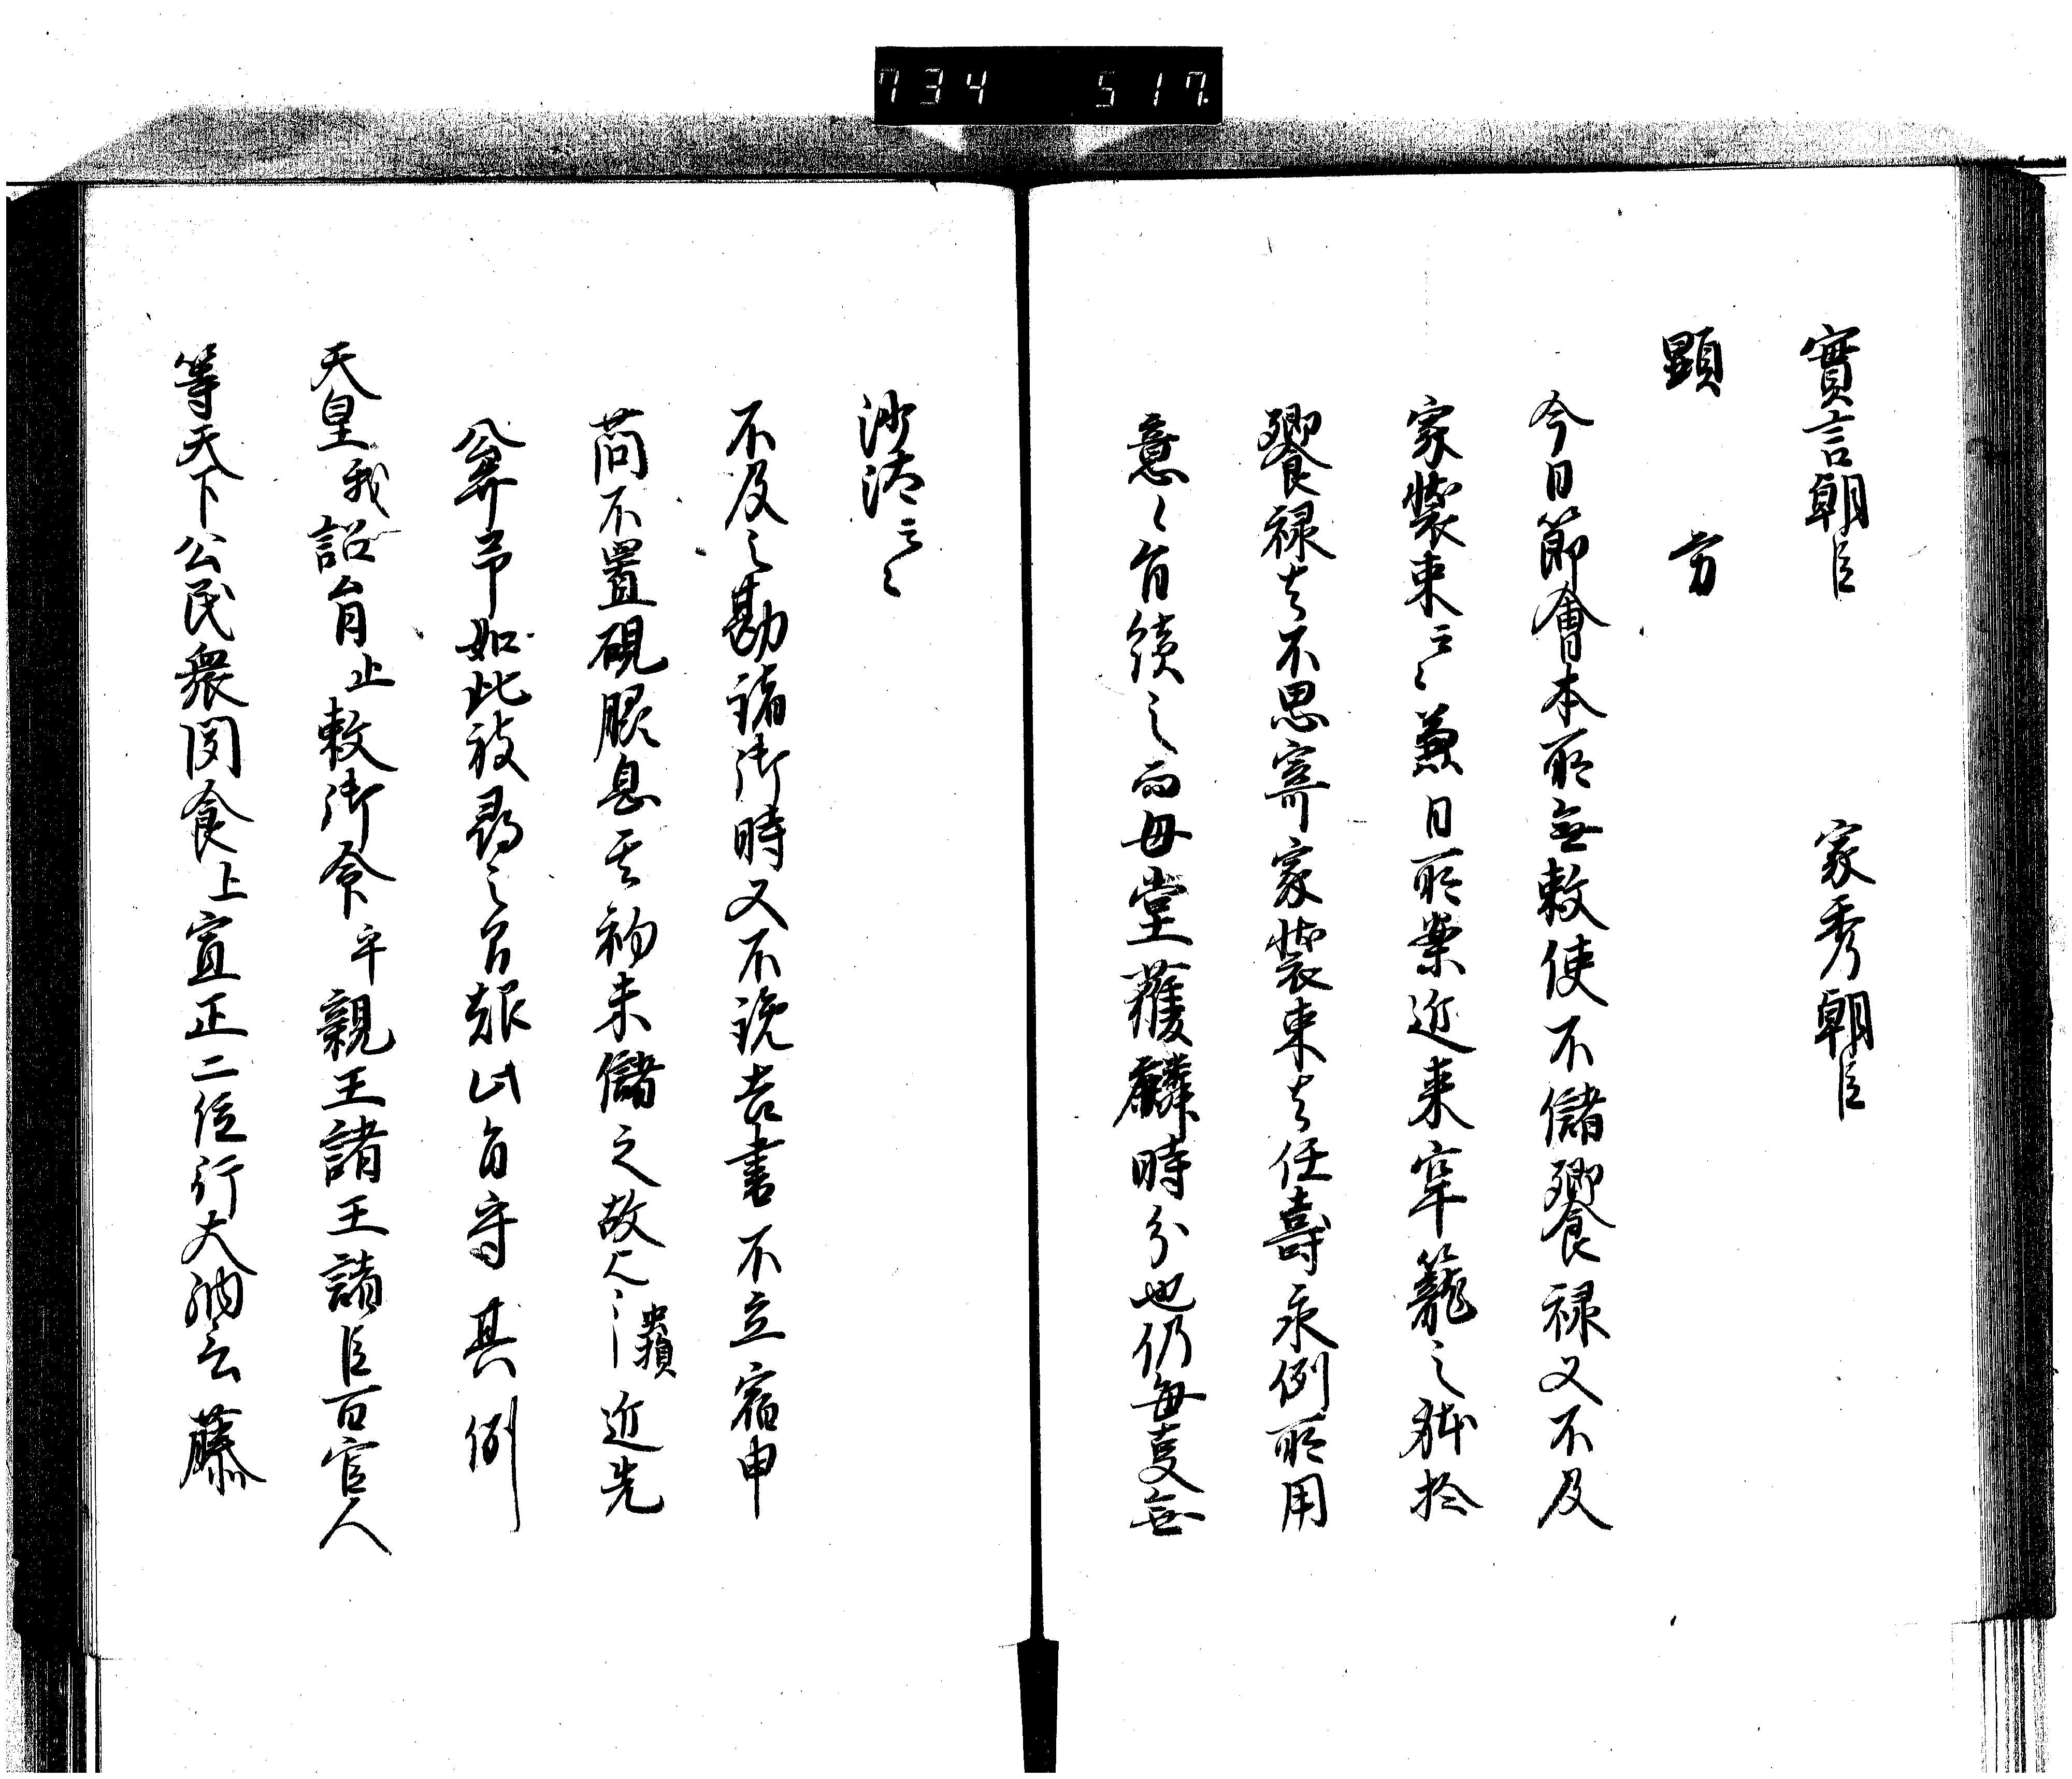 734 517.
實言朝臣 家秀朝臣
顕方
今日節會本所無敕使不儲饗禄又不及
家裝束云々兼日所案近来窂籠之躰於
饗禄者不思寄家裝束者任壽永例所用
意々有續之而母堂獲麟時分也仍每夏無
沙汰云々
不及之勘諸御時又不覧吉書不立宿申
茼不置硯脇息其物未儲之故也近先
公弊帚如此被尋之有此自守其例
天皇我詔旨止敕御命乎親王諸王諸臣百官人
等天下公民衆聞食止宣正二位行大納言藤